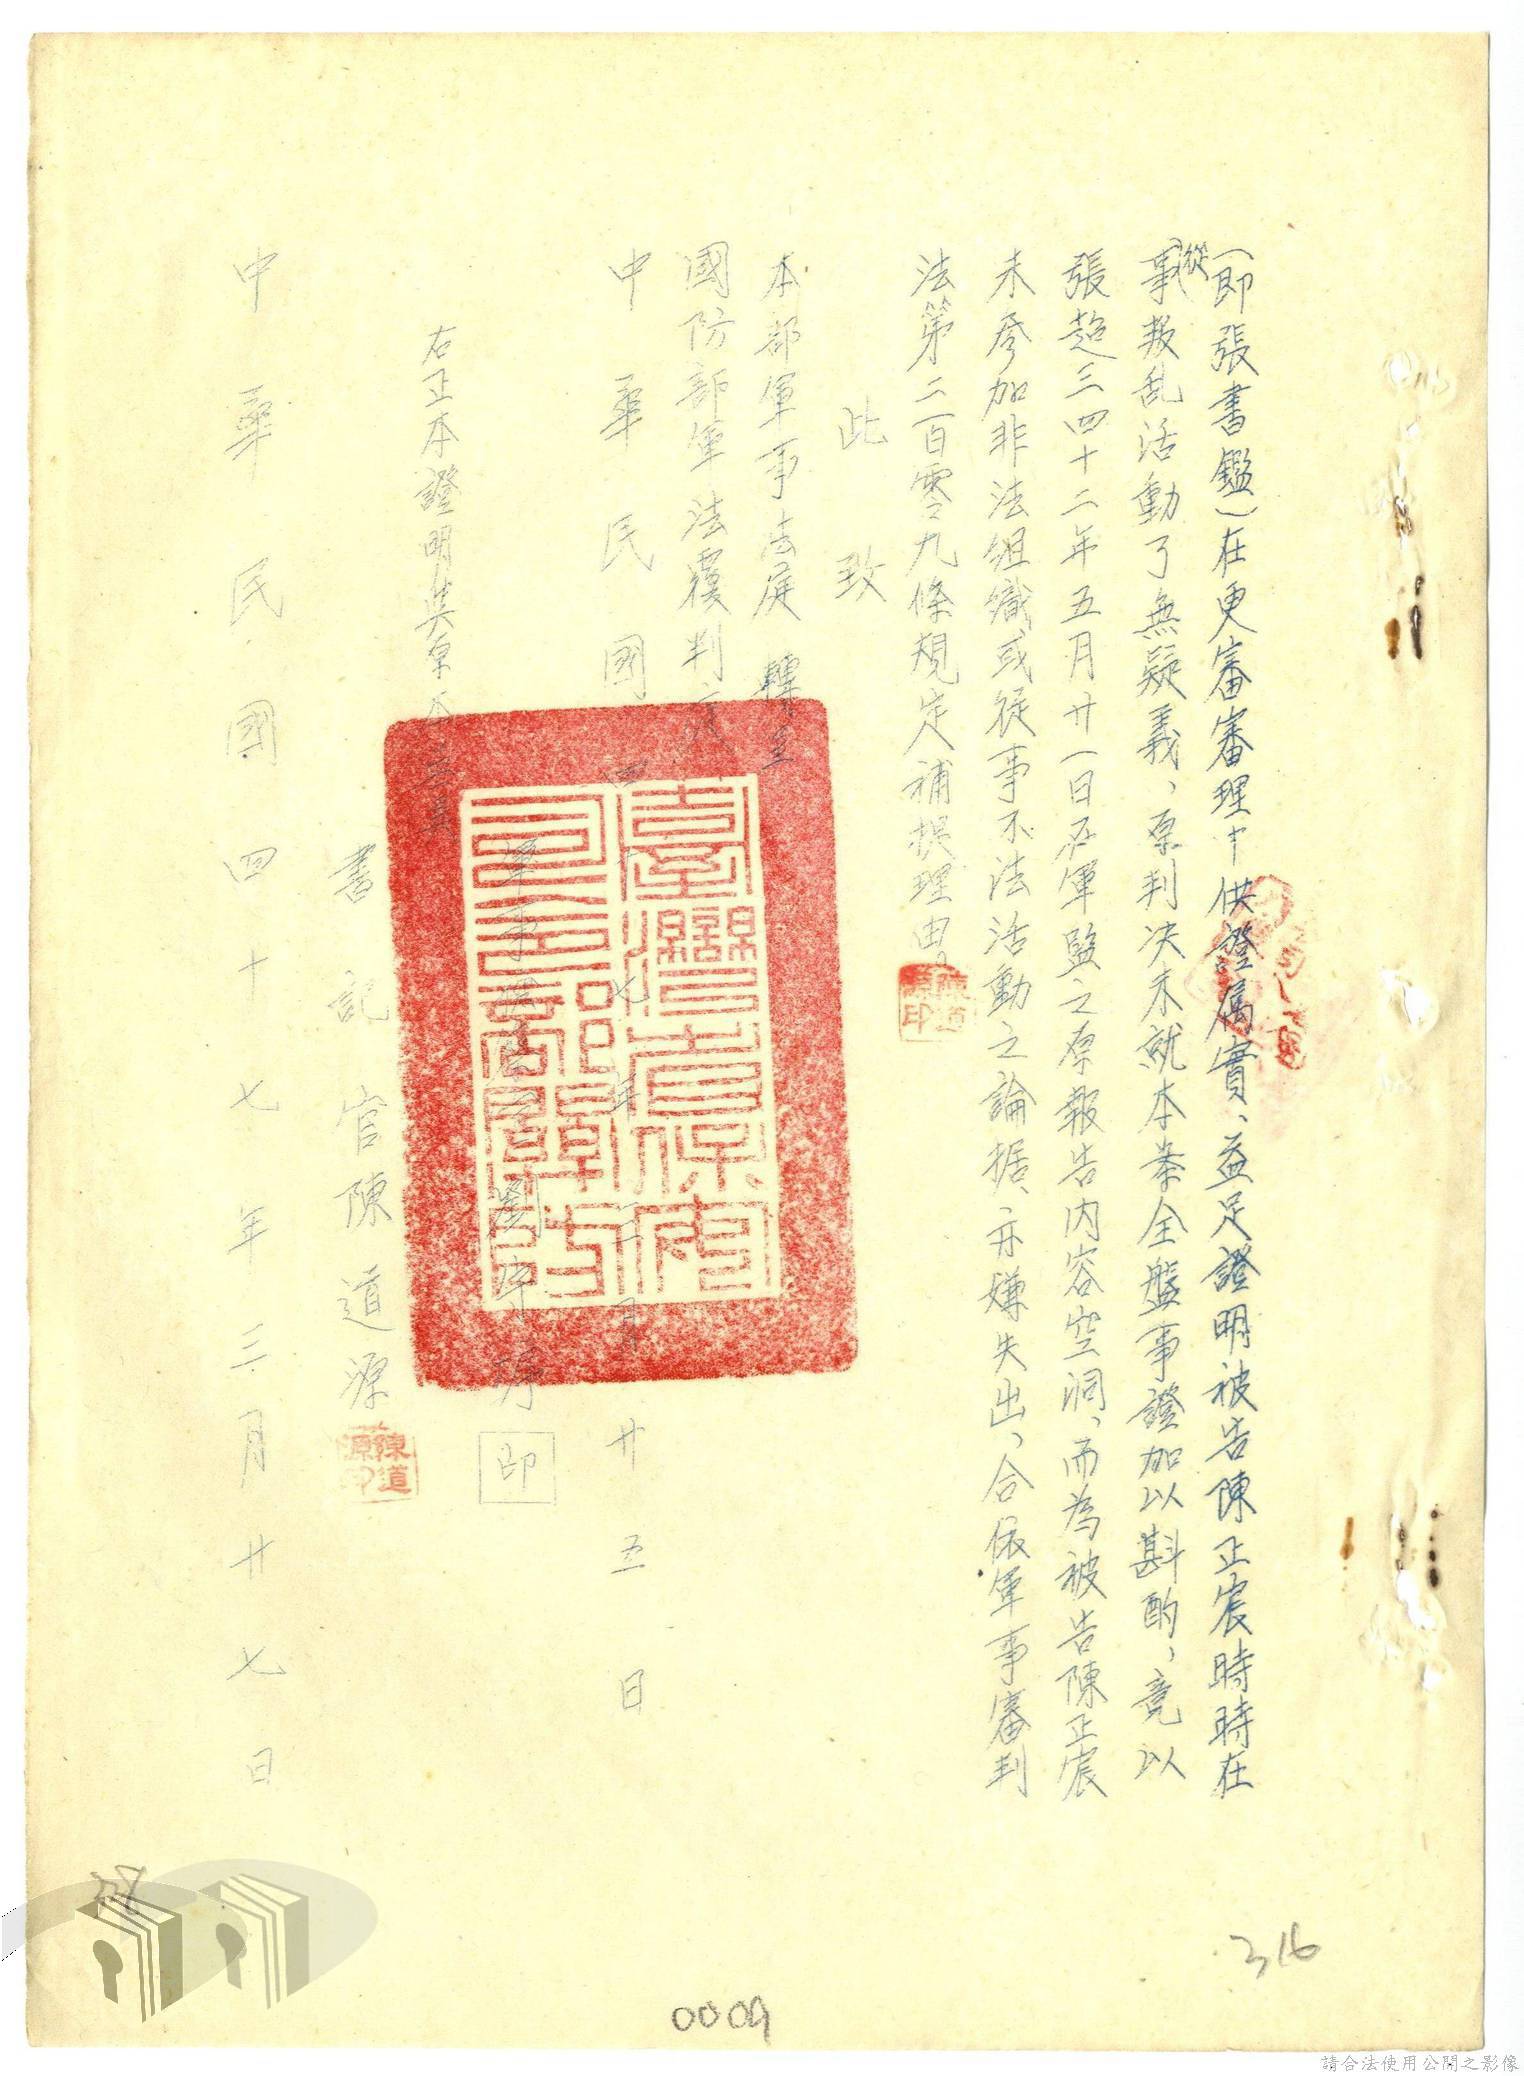 (即張書鑑)在更審審理中供證属實、益足證明被告陳正宸時時在
從事叛乱活動了無疑義、原判决未就本案全盤事證加以斟酌、竟以
張超三四十二年五月廿一日在軍監之原報告内容空洞、而為被告陳正宸
未參加非法組織或從事不法活動之論据、亦嫌失出、合依軍事審判
法第二百零九條規定補提理由。
陳道源印
此致
本部軍事法庭 轉呈
國防部軍法覆判庭
中華民國四十七年三月廿五日
軍事檢察官劉
印
臺灣省保安司令部關防
右正本證明與原本無異
書記官陳道源
陳道源印
中華民國四十七年三月廿七日
316
0009
請合法使用公開之影像